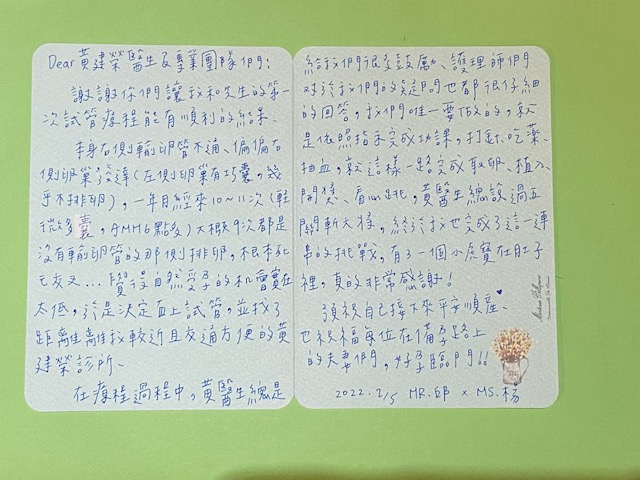 Dear 黃建榮醫生及專業團隊們:
謝謝你們讓我和先生的第一
次試管療程能有順利的結果、
本身右側輸卵管不通、偏偏右
側卵巢發達(左側卵巢有巧囊,幾
乎不排卵),一年月經來10~11次(輕
微多囊,AMH6點多)大概9次都是
沒有輸卵管的那側排卵,根本死
七友又...覺得自然受孕的机會實在
太低,於是決定直上試管,並找了
距離離我較近且交通方便的黃
建榮診所、
在療程過程中,黃醫生總是
給我們很多鼓勵、護理師們
對於我們的疑問也都很仔細
的回答,我們唯一要做的,就
是依照指示完成功課,打針、吃藥、
抽血,就這樣一路完成取卵、植入、
開獎、看心跳,黃醫生總說過五
關斬六將,終於我也完成了這一連
串的挑戰,有了一個小虎寶在肚子
裡,真的非常感謝!
預祝自己接下來平安順產、
也祝福每位在備孕路上
的夫妻們,好孕臨門!!
2022.2/5 MR.邱 × MS.楊